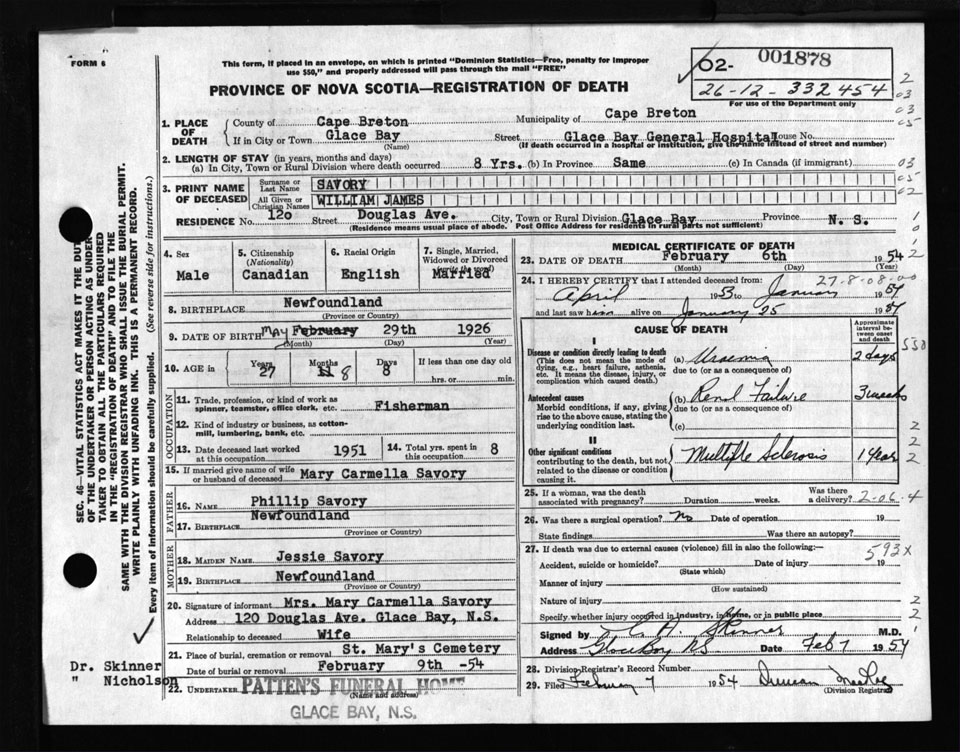 FORM 6
This form, if placed in an envelope, on which is printed "Dominion Statistics—Free, penalty for improper
use $50," and properly addressed will pass through the mail "FREE"
PROVINCE OF NOVA SCOTIA—REGISTRATION OF DEATH
02- 001878
26-12-332454
For use of the Department only
2
03
03
05
03
05
02
1. PLACE OF DEATH
County of Cape Breton Municipality of Cape Breton
If in City or Town Glace Bay Street Glace Bay General Hospital House No.
(Name) (If death occurred in a hospital or institution, give the name instead of street and number)
2. LENGTH OF STAY (in years, months and days)
(a) In City, Town or Rural Division where death occurred 8 Yrs. (b) In Province Same (c) In Canada (if immigrant)
3. PRINT NAME OF DECEASED
Surname or Last Name SAVORY
All Given or Christian Names WILLIAM JAMES
RESIDENCE No. 120 Street Douglas Ave. City, Town or Rural Division Glace Bay Province N. S.
(Residence means usual place of abode. Post Office Address for residents in rural parts not sufficient)
4. Sex
Male
5. Citizenship (Nationality)
Canadian
6. Racial Origin
English
7. Single, Married, Widowed or Divorced (write the word)
Married
8. BIRTHPLACE Newfoundland
(Province or Country)
9. DATE OF BIRTH May February 29th 1926
(Month) (Day) (Year)
10. AGE in Years 27 Months 11 8 Days 8 If less than one day old
hrs. or min.
OCCUPATION
11. Trade, profession, or kind of work as
spinner, teamster, office clerk, etc. Fisherman
12. Kind of industry or business, as cotton-
mill, lumbering, bank, etc.
13. Date deceased last worked at this occupation 1951 14. Total yrs. spent in this occupation 8
15. If married give name of wife or husband of deceased Mary Carmella Savory
FATHER
16. Name Phillip Savory
17. Birthplace Newfoundland
(Province or Country)
MOTHER
18. Maiden Name Jessie Savory
19. Birthplace Newfoundland
(Province or Country)
20. Signature of informant Mrs. Mary Carmella Savory
Address 120 Douglas Ave. Glace Bay, N.S.
Relationship to deceased Wife
21. Place of burial, cremation or removal St. Mary's Cemetery
Date of burial or removal February 9th -54
22. Undertaker PATTEN'S FUNERAL HOME
(Name and address)
GLACE BAY, N.S.
MEDICAL CERTIFICATE OF DEATH
23. DATE OF DEATH February 6th 1954
(Month) (Day) (Year)
27-8-08-00
24. I HEREBY CERTIFY that I attended deceased from:
April 1953 to January 1954
and last saw him alive on January 25 1954
CAUSE OF DEATH
Approximate interval between onset and death
I
Disease or condition directly leading to death
(This does not mean the mode of
dying, e.g., heart failure, asthenia,
etc. It means the disease, injury, or
complication which caused death.)
(a) Uraemia 2 days
due to (or as a consequence of)
Antecedent causes
Morbid conditions, if any, giving
rise to the above cause, stating the
underlying condition last.
(b) Renal Failure 3 weeks
due to (or as a consequence of)
(c)
II
Other significant conditions
contributing to the death, but not
related to the disease or condition
causing it.
Multiple Sclerosis 1 Year
25. If a woman, was the death associated with pregnancy? Duration weeks. Was there a delivery? 2-06-4
26. Was there a surgical operation? No Date of operation 19
State findings Was there an autopsy?
27. If death was due to external causes (violence) fill in also the following:— 593X
Accident, suicide or homicide? Date of injury 19
(State which)
Manner of injury
(How sustained)
Nature of injury
Specify whether injury occurred in industry, in home, or in public place
Signed by Skinner M.D.
Address Glace Bay NS Date Feb 7 1954
28. Division Registrar's Record Number
29. Filed February 7 1954 Duncan
(Division Registrar)
SEC. 46—VITAL STATISTICS ACT MAKES IT THE DUTY
OF THE UNDERTAKER OR PERSON ACTING AS UNDER-
TAKER TO OBTAIN ALL THE PARTICULARS REQUIRED
IN THE "REGISTRATION OF DEATH" AND TO FILE THE
SAME WITH THE DIVISION REGISTRAR WHO SHALL ISSUE THE BURIAL PERMIT.
WRITE PLAINLY WITH UNFADING INK. THIS IS A PERMANENT RECORD.
Every item of information should be carefully supplied. (See reverse side for instructions.)
Dr. Skinner
" Nicholson